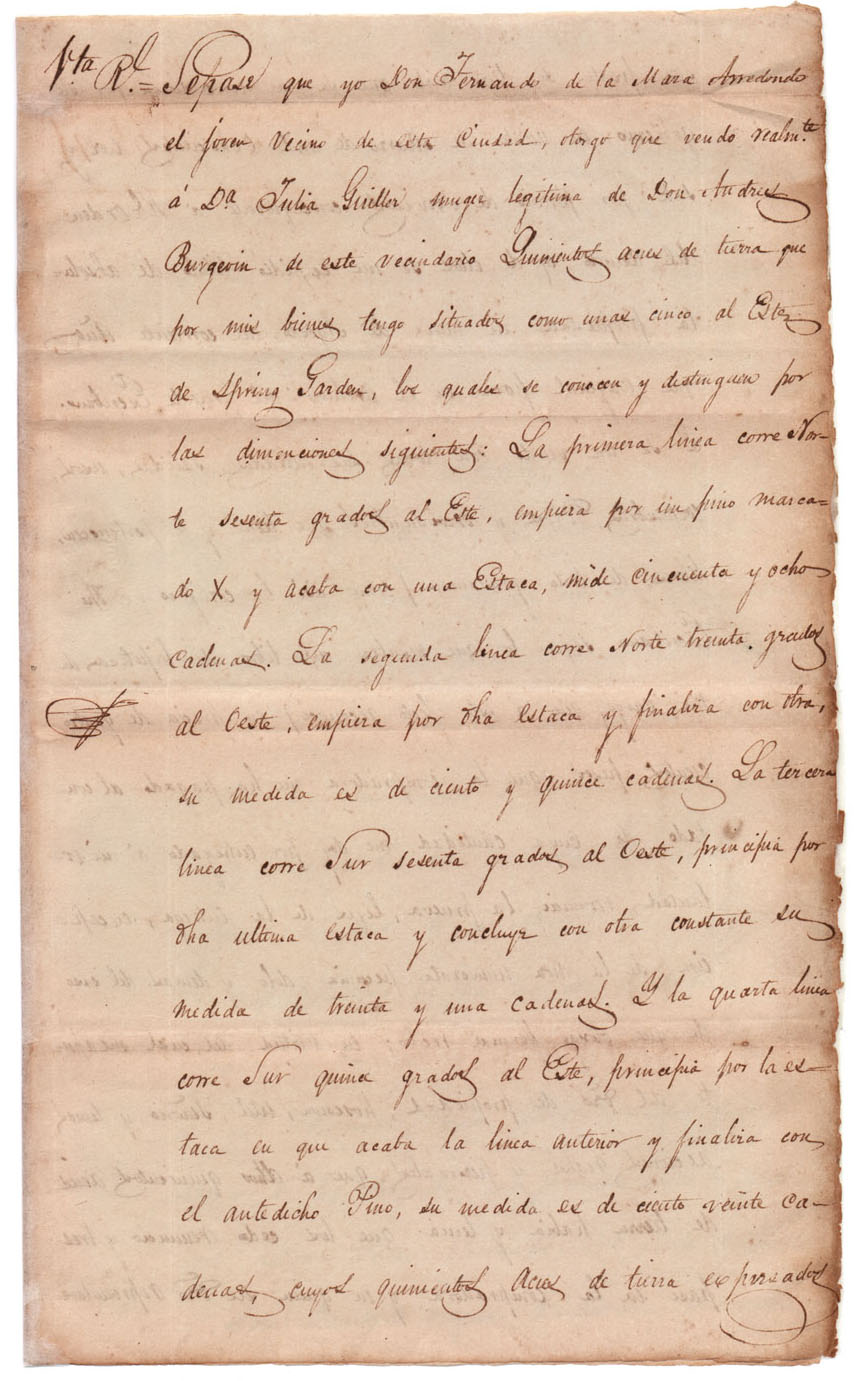 Vta Rl = Sepase que yo Don Fernando de la Maza Arredondo
el joven vecino de esta Ciudad, otorgo que vendo realmte
á Da Julia Guiller muger legitima de Don Andres
Burgevin de este vecindario Quinientos acres de tierra que
por mis bienes tengo situados como unas cinco al Este
de Spring Garden, los quales se conocen y distinguen por
las dimenciones siguientes: La primera linea corre Nor=
te sesenta grados al Este, empieza por un pino marca=
do X y acaba con una Estaca, mide cincuenta y ocho
cadenas. La segunda linea corre Norte treinta grados
al Oeste, empieza por dha estaca y finaliza con otra,
su medida es de ciento y quince cadenas. La tercera
linea corre Sur sesenta grados al Oeste, principia por
dha ultima estaca y concluye con otra constante su
medida de treinta y una cadenas. Y la quarta linea
corre Sur quince grados al Este, principia por la es=
taca en que acaba la linea anterior y finaliza con
el antedicho Pino, su medida es de ciento veinte ca=
denas, cuyos quinientos acres de tierra expresados